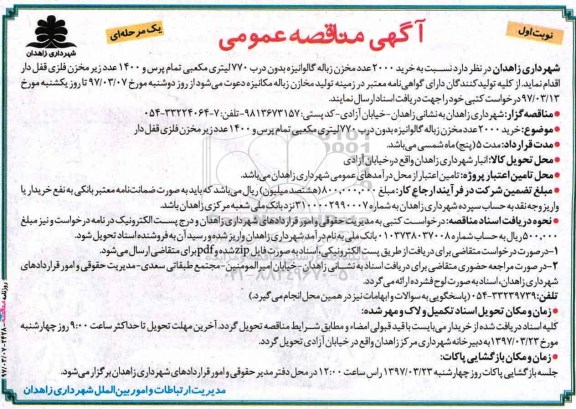 نوبت اول
آگهی مناقصه عمومی
یک مرحله‌ای
شهرداری زاهدان
شهرداری زاهدان در نظر دارد نسبت به خرید ۲۰۰۰ عدد مخزن زباله گالوانیزه بدون درب ۷۷۰ لیتری مکعبی تمام پرس و ۱۴۰۰ عدد زیر مخزن فلزی قفل دار
اقدام نماید. از کلیه تولیدکنندگان دارای گواهی‌نامه معتبر در زمینه تولید مخازن زباله مکانیزه دعوت می‌شود از روز دوشنبه مورخ ۹۷/۰۳/۰۷ تا روز یکشنبه مورخ
۹۷/۰۳/۱۳ درخواست کتبی خود را جهت دریافت اسناد ارسال نمایند.
● مناقصه گزار: شهرداری زاهدان به نشانی زاهدان - خیابان آزادی - کد پستی: ۹۸۱۳۶۷۳۱۵۷ - تلفن: ۷-۳۳۲۲۴۰۶۴-۰۵۴
● موضوع: خرید ۲۰۰۰ عدد مخزن زباله گالوانیزه بدون درب ۷۷۰ لیتری مکعبی تمام پرس و ۱۴۰۰ عدد زیر مخزن فلزی قفل دار
● مدت قرارداد: مدت ۵ (پنج) ماه شمسی می‌باشد.
● محل تحویل کالا: انبار شهرداری زاهدان واقع در خیابان آزادی
● محل تامین اعتبار پروژه: تامین اعتبار از محل درآمدهای عمومی شهرداری زاهدان می‌باشد.
● مبلغ تضمین شرکت در فرآیند ارجاع کار: مبلغ ۸۰۰,۰۰۰,۰۰۰ (هشتصد میلیون) ریال می‌باشد که باید به صورت ضمانت‌نامه معتبر بانکی به نفع خریدار یا
واریز وجه نقد به حساب سپرده شهرداری زاهدان به شماره ۳۱۰۰۰۰۲۹۹۰۰۰۷ نزد بانک ملی شعبه مرکزی زاهدان باشد.
● نحوه دریافت اسناد مناقصه: درخواست کتبی به مدیریت حقوقی و امور قراردادهای شهرداری زاهدان و درج پست الکترونیک در نامه درخواست و نیز مبلغ
۵۰۰,۰۰۰ ریال به حساب شماره ۰۱۰۳۷۳۸۰۳۷۰۰۸ بانک ملی به نام درآمد شهرداری زاهدان واریز شده و رسید آن به فروشنده اسناد تحویل شود.
۱- در صورت درخواست متقاضی برای دریافت از طریق پست الکترونیکی، اسناد به صورت فایل zip شده و pdf برای متقاضی ارسال می‌شود.
۲- در صورت مراجعه حضوری متقاضی برای دریافت اسناد به نشانی زاهدان - خیابان امیرالمومنین - مجتمع طبقاتی سعدی - مدیریت حقوقی و امور قراردادهای
شهرداری زاهدان، اسناد به صورت لوح فشرده ارائه می‌گردد.
تلفن: ۳۳۲۳۹۷۳۹-۰۵۴ (پاسخگویی به سوالات و ابهامات نیز در همین محل انجام می‌گیرد.)
● زمان و مکان تحویل اسناد تکمیل و لاک و مهر شده:
کلیه اسناد دریافت شده از خریدار می‌بایست با قید قبولی امضاء و مطابق شرایط مناقصه تحویل گردد. آخرین مهلت تحویل تا حداکثر ساعت ۹:۰۰ روز چهارشنبه
مورخ ۱۳۹۷/۰۳/۲۳ به دبیرخانه شهرداری مرکز زاهدان واقع در خیابان آزادی تحویل گردد.
● زمان و مکان بازگشایی پاکات:
جلسه بازگشایی پاکات روز چهارشنبه ۱۳۹۷/۰۳/۲۳ راس ساعت ۱۲:۰۰ در محل دفتر مدیر حقوقی و امور قراردادهای شهرداری زاهدان برگزار می‌شود.
مدیریت ارتباطات و امور بین الملل شهرداری زاهدان